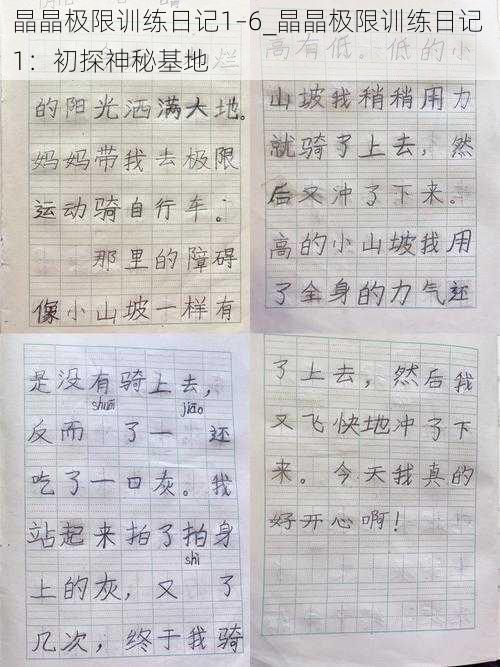 晶晶极限训练日记1-6_晶晶极限训练日记
1：初探神秘基地
烂
的阳光洒满大地。
妈妈带我去极限
运动骑自行车。
那里的障碍
像小山坡一样有
高有低。低的小
山坡我稍稍用力
就骑了上去，然
后又冲了下来。
高的小山坡我用
了全身的力气还
是没有骑上去，
shuāi jiāo
反而 了一 还
吃了一口灰。我
站起来拍了拍身
shì
上的灰，又 了
几次，终于我骑
了上去，然后我
又飞快地冲了下
来。今天我真的
好开心啊！